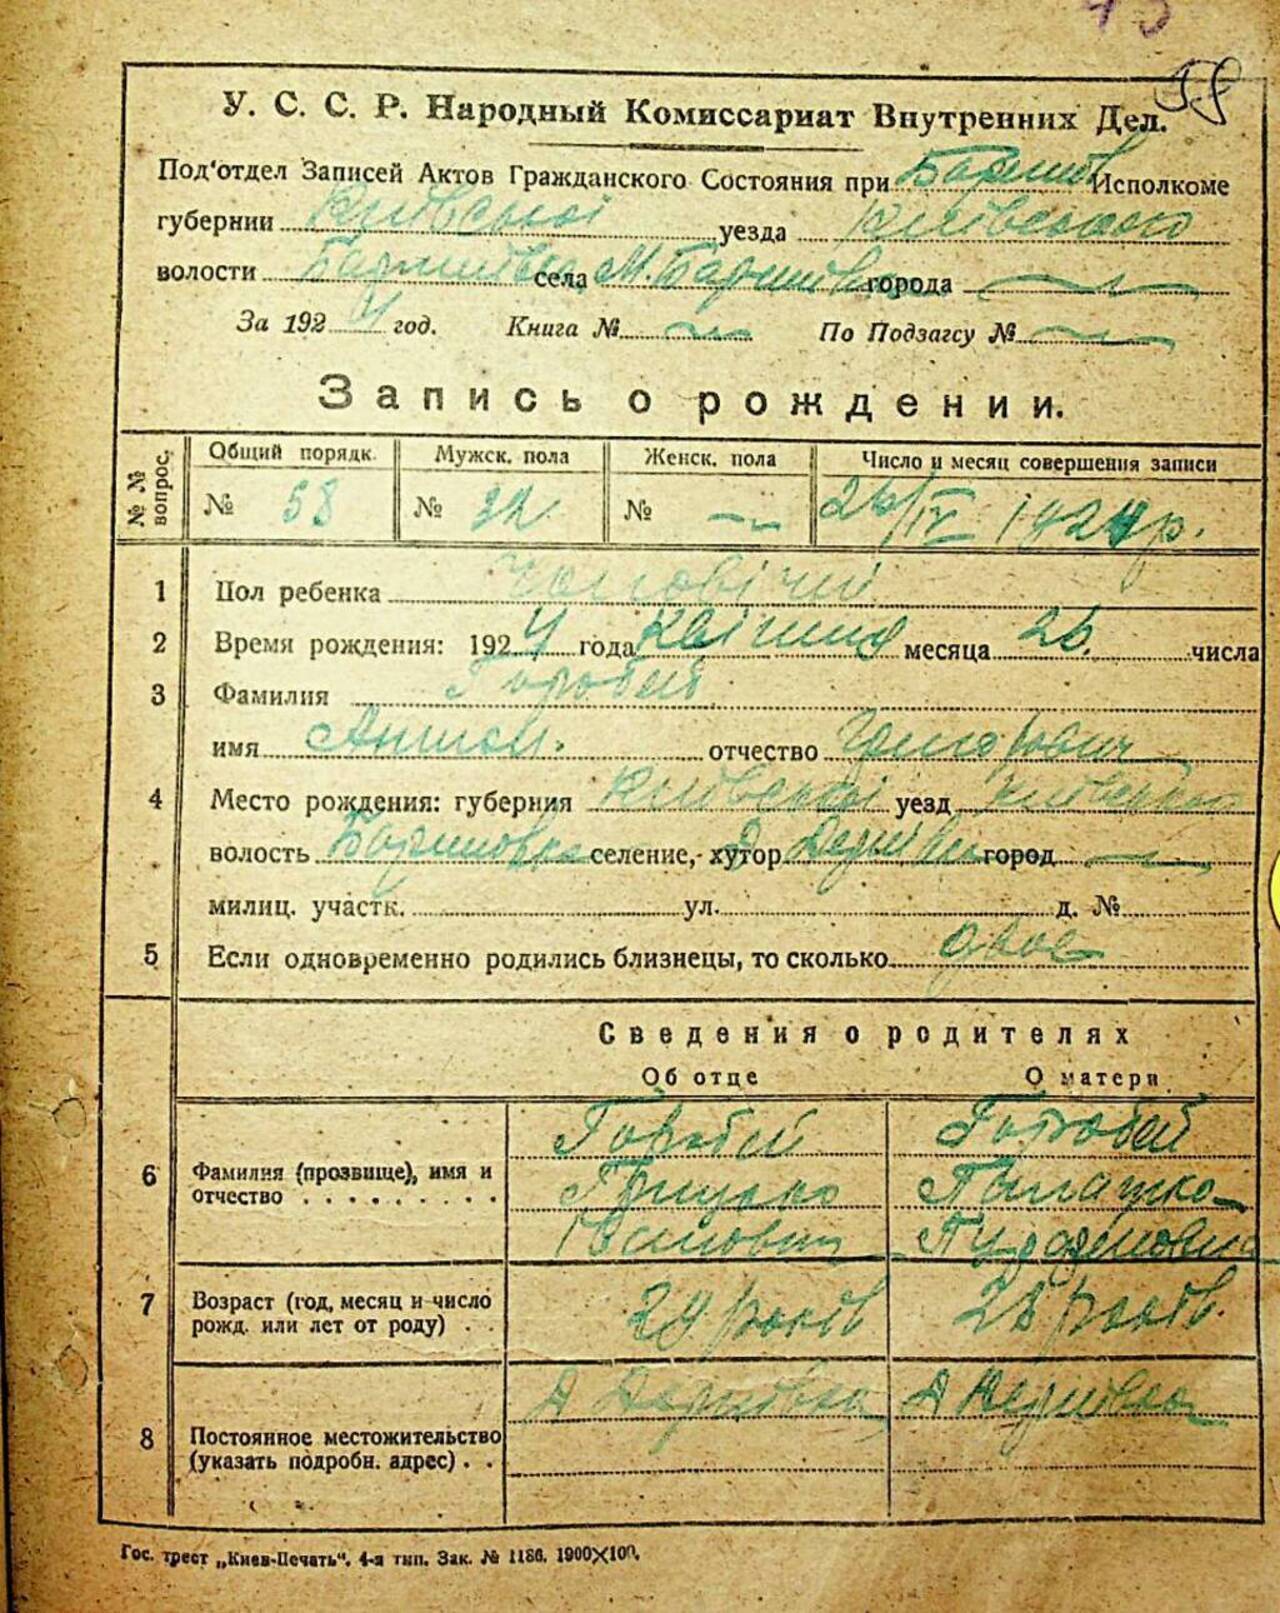 У. С. С. Р. Народный Комиссариат Внутренних Дел.
Под'отдел Записей Актов Гражданского Состояния при Исполкоме
губернии Київської уезда Київського
волости Баришівка села М. Баришівка города
За 1924 год. Книга № По Подзагсу №
Запись о рождении.
№ № вопрос. Общий порядк. Мужск. пола Женск. пола Число и месяц совершения записи
№ 58 № 32 № 26/IV 1924 р.
1 Пол ребенка Чоловічий
2 Время рождения: 1924 года Квітня месяца 26. числа
3 Фамилия Горобей
имя Антон. отчество Григорович
4 Место рождения: губерния Київської уезд
волость Баришовка селение,- хутор город
милиц. участк. ул. д. №
5 Если одновременно родились близнецы, то сколько двое
Сведения о родителях
Об отце О матери
Горобей Горобей
6 Фамилия (прозвище), имя и Грицько Палажка
отчество . . . . . . . . .
Іванович
7 Возраст (год, месяц и число 29 років років.
рожд. или лет от роду) . .
8 Постоянное местожительство
(указать подробн. адрес) . .
Гос. трест „Киев-Печать". 4-я тип. Зак. № 1186. 1900X100.